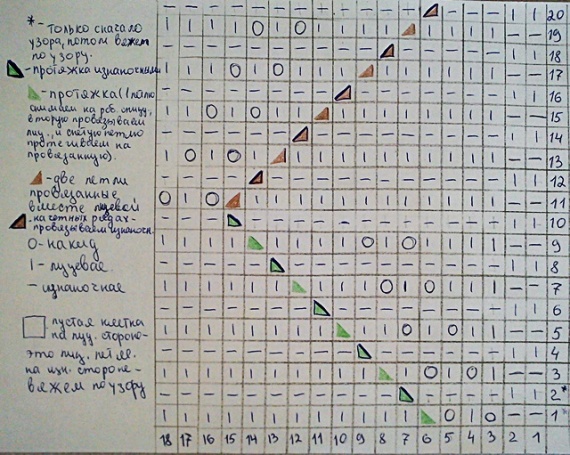 * - только сначало
узора, потом вяжем
по узору.
- протяжка изнаночными
- протяжка (1 петлю
снимаем на рбс спицу,
вторую провязываем
лиц., и снятую петлю
протягиваем на
провязанную).
- две петли
провязанные
вместе лицевой
- на четных рядах -
провязываем изнаночн.
O - накид
I - лицевая
— - изнаночная
- пустая клетка
на лиц. стороне -
это лиц. петля.
на изн. стороне -
вяжем по узору
20
19
18
17
16
15
14
13
12
11
10
9
8
7
6
5
4
3
2*
1
18 17 16 15 14 13 12 11 10 9 8 7 6 5 4 3 2 1